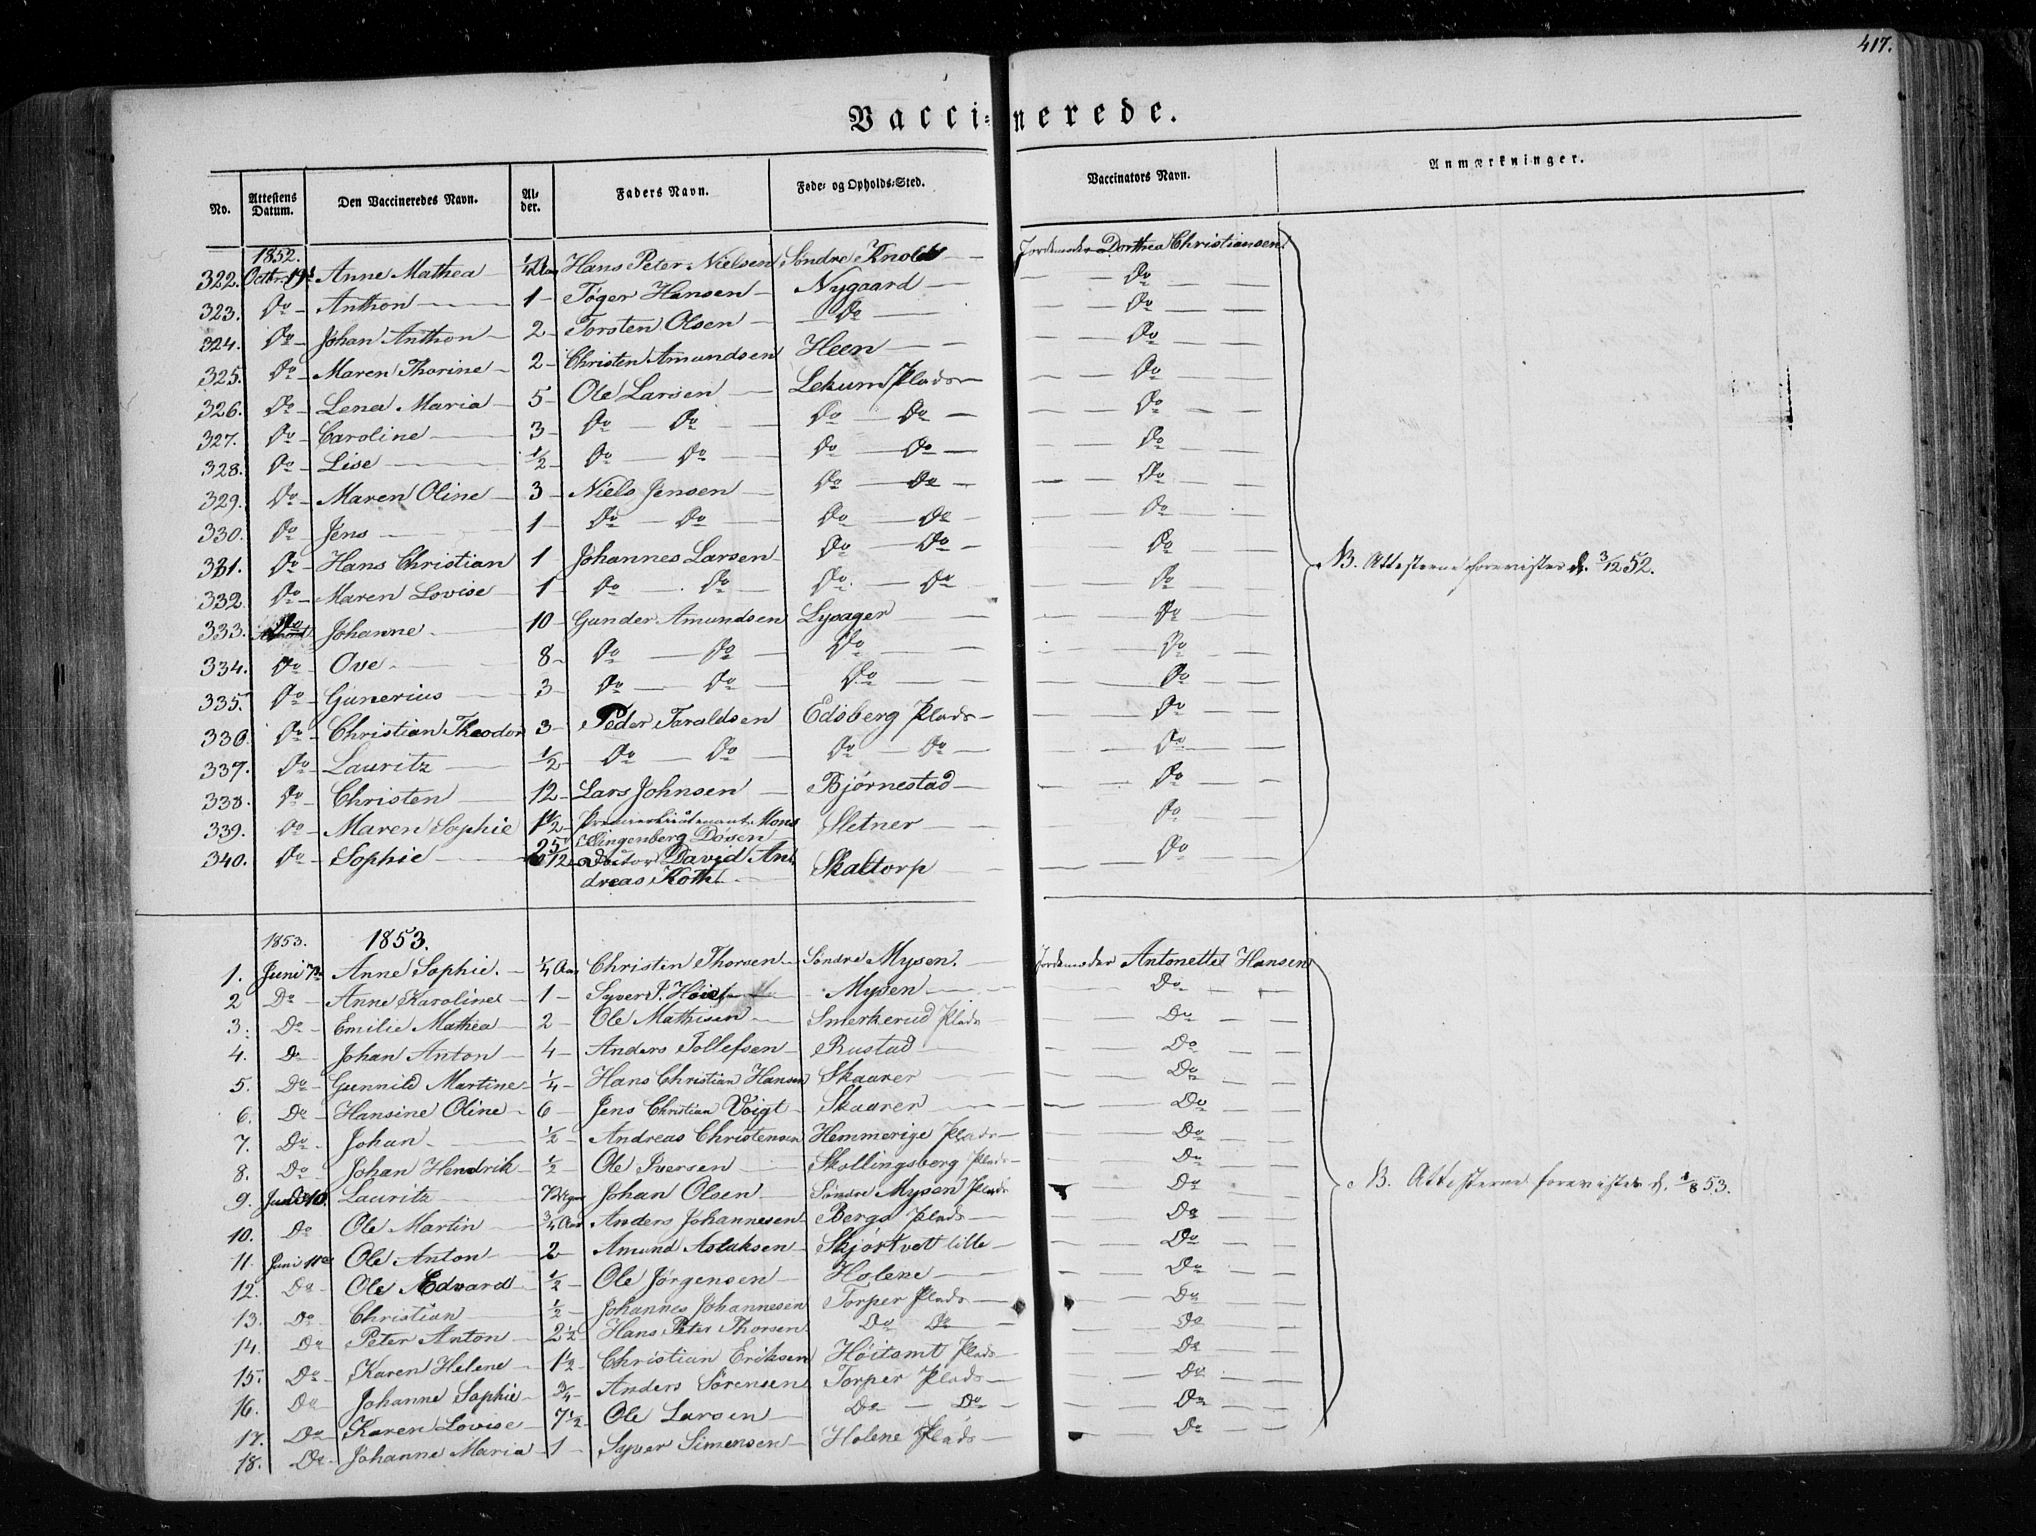 417.
Vaccinerede.
No. Attestens Datum. Den Vaccineredes Navn. Alder. Faders Navn. Føde- og Opholds-Sted. Vaccinators Navn. Anmærkninger.
1852.
322. Octbr. 19 Anne Mathea 1/4 Aar Hans Peter Nielsen Søndre Knold Jordemoder Dorthea Christiansen
323. Do Anthon 1 Tøger Hansen Nygaard Do
324. Do Johan Anthon 2 Torsten Olsen Do Do
325. Do Maren Thorine 2 Christen Amundsen Heen Do
326. Do Lena Maria 5 Ole Larsen Lekum Plads Do
327. Do Caroline 3 Do Do Do Do Do
328. Do Lise 1/2 Do Do Do Do Do
329. Do Maren Oline 3 Niels Jensen Do Do Do
330. Do Jens 1 Do Do Do Do Do
331. Do Hans Christian 1 Johannes Larsen Do Do Do
332. Do Maren Lovise 1 Do Do Do Do Do
NB. Attesterne forevister d. 3/12 52.
333. Do Johanne 10 Gunder Amundsen Lysager Do
334. Do Ove 8 Do Do Do Do
335. Do Gunerius 3 Do Do Do Do
336. Do Christian Theodor 3 Peder Taraldsen Edsberg Plads Do
337. Do Lauritz 1/2 Do Do Do Do Do
338. Do Christen 12 Lars Johnsen Bjørnestad Do
339. Do Maren Sophie 1 1/2 Premierlieutenant Mons Klingenberg Døsen Sletner Do
340. Do Sophie Doctor David Andreas Koth Skaltorp Do
1853. 1853.
1. Juni 7de Anne Sophie. 1/4 Aar Christen Thorsen Søndre Mysen. Jordemoder Antonette Hansen
2 Do Anne Karoline 1 Syver P. Mysen Do
3. Do Emilie Mathea 2 Ole Mathisen Smerkerud Plads Do
4. Do Johan Anton 4 Anders Tollefsen Rustad Do
5. Do Gunnild Martine 1/4 Hans Christian Hansen Skaarer Do
6. Do Hansine Oline 6 Jens Christian Voigt Skaarer Do
7. Do Johan 1/2 Andreas Christensen Hemmerige Plads Do
8. Do Johan Hendrik 1/2 Ole Iversen Skollingsberg Plads Do
9. Juni 10. Lauritz 7 Johan Olsen Søndre Mysen Plads Do
NB. Attesterne forevister d. 1/8 53.
10. Do Ole Martin 3/4 Aar Anders Johannesen Bergs Plads Do
11. Juni 11te Ole Anton 2 Amund Aslaksen Skjørtvett lille Do
12. Do Ole Edvard 1/2 Ole Jørgensen Holene Do
13. Do Christian 1/2 Johannes Johannesen Torper Plads Do
14. Do Peter Anton 2 1/2 Hans Peter Thorsen Do Do Do
15. Do Karen Helene 1 1/2 Christian Eriksen Høitomt Plads Do
16. Do Johanne Sophie 3/4 Anders Sørensen Torper Plads Do
17. Do Karen Lovise 7 1/2 Ole Larsen Do Do Do
18. Do Johanne Maria 1 Syver Simensen Holene Plads Do